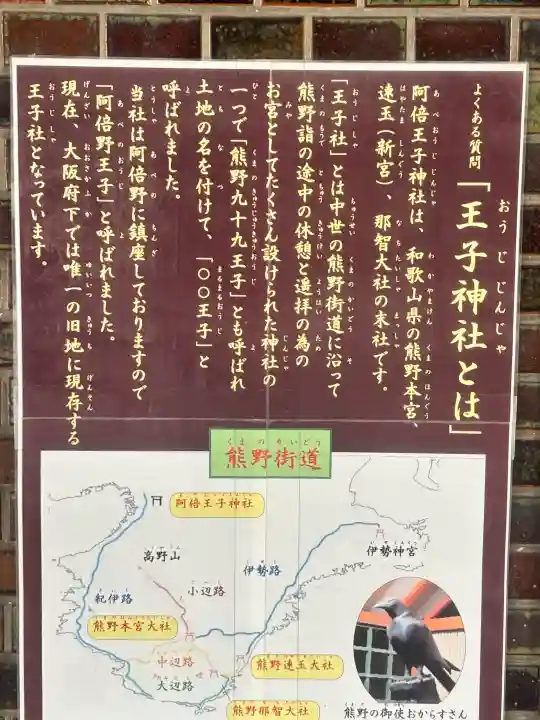 よくある質問
「王子神社とは」
阿倍王子神社は、和歌山県の熊野本宮、
速玉(新宮)、那智大社の末社です。
「王子社」とは中世の熊野街道に沿って
熊野詣の途中の休憩と遥拝の為の
お宮としてたくさん設けられた神社の
一つで「熊野九十九王子」とも呼ばれ
土地の名を付けて、「〇〇王子」と
呼ばれました。
当社は阿倍野に鎮座しておりますので
「阿倍野王子」と呼ばれました。
現在、大阪府下では唯一の旧地に現存する
王子社となっています。
熊野街道
阿倍王子神社
高野山
伊勢神宮
伊勢路
小辺路
紀伊路
熊野本宮大社
中辺路
熊野速玉大社
大辺路
熊野那智大社
熊野の御使おからすさん